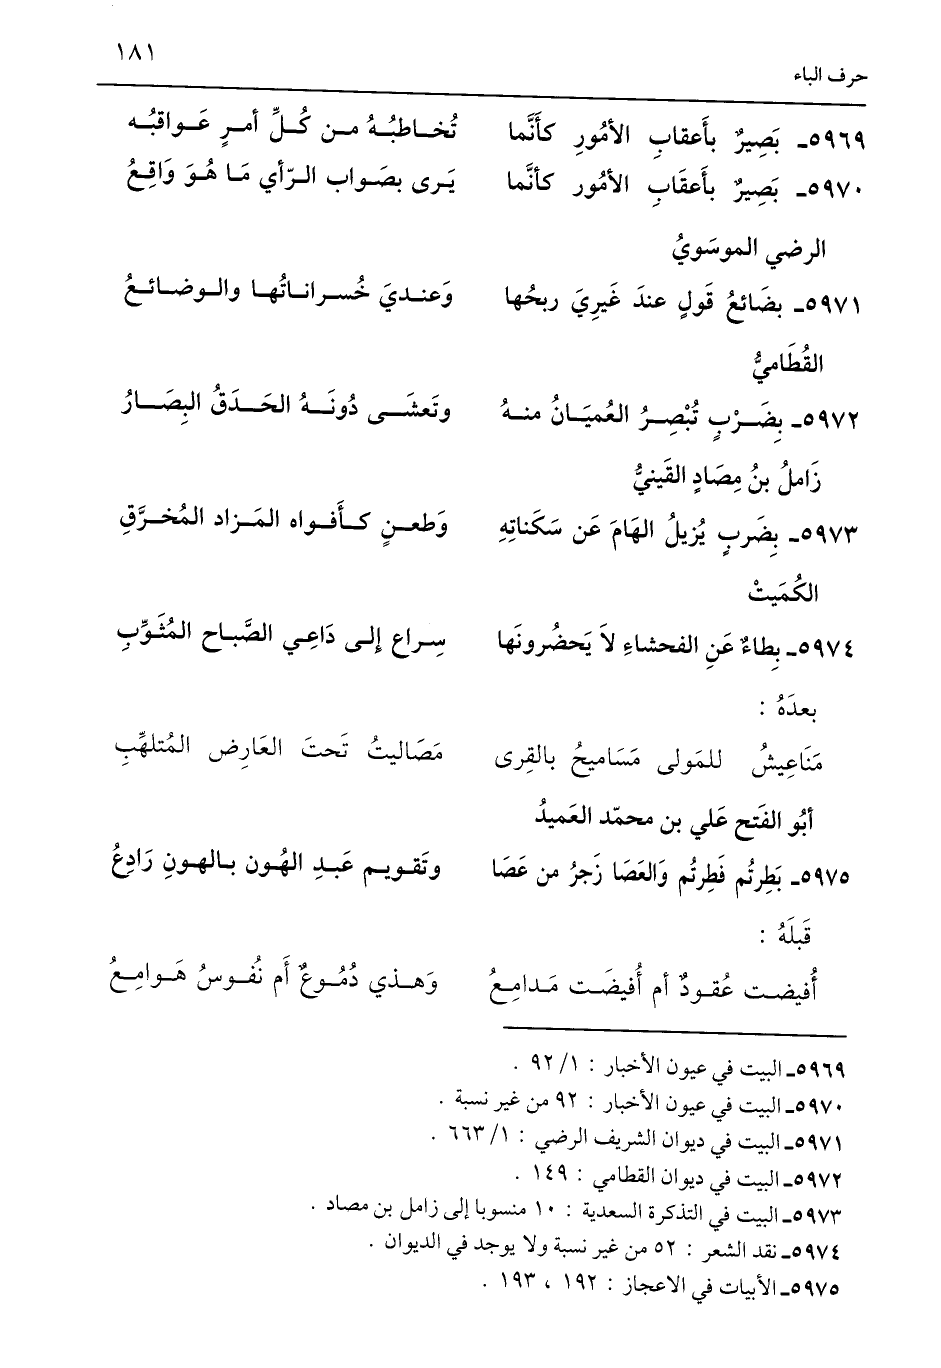 ١٨١
حرف الباء
٥٩٦٩ـ بَصِيرٌ بأَعقابِ الأمُورِ كأَنَّما تُخـاطبُـهُ مـن كُـلِّ أمـرٍ عَـواقبُـه
٥٩٧٠ـ بَصِيرٌ بأَعقَابِ الأمُورِ كأنَّما يَـرى بصَـواب الـرّأي مَـا هُـوَ وَاقِـعُ
الرضي الموسَويُ
٥٩٧١ـ بضَائعُ قَولٍ عندَ غَيرِيَ ربحُها وَعـنـديَ خُـسـرانـاتُـهـا والـوضـائـعُ
القُطَاميُّ
٥٩٧٢ـ بِضَــرْبٍ تُبْصِــرُ العُميَـانُ منـهُ وتَعشَــى دُونَــهُ الحَــدَقُ البِصَــارُ
زَاملُ بنُ مِصَادٍ القَينيُّ
٥٩٧٣ـ بِضَربٍ يُزيلُ الهَامَ عَن سَكَناتِهِ وَطعـنٍ كـأَفـواه المَـزاد المُخـرَّقِ
الكُمَيتْ
٥٩٧٤ـ بِطاءٌ عَنِ الفحشاءِ لاَ يَحضُرونَها سِـراع إلـى دَاعِـي الصَّبـاح المُثَـوِّبِ
بعدَهُ :
مَنَاعِيشُ للمَولى مَسَاميحُ بالقِرى مَصَاليتُ تَحتَ العَارِض المُتلهِّبِ
أبُو الفَتح عَلي بن محمّد العَميدُ
٥٩٧٥ـ بَطِرتُم فَطِرتُم وَالعَصَا زَجرُ من عَصَا وتَقـويـم عَبـدِ الهُون بـالهونِ رَادِعُ
قَبلَهُ :
أُفيضـت عُقـودٌ أم أُفيضَـت مَـدامِـعُ وَهـذي دُمُـوعٌ أَم نُفُـوسُ هَـوامِـعُ
٥٩٦٩ـ البيت في عيون الأخبار : ١/ ٩٢ .
٥٩٧٠ـ البيت في عيون الأخبار : ٩٢ من غير نسبة .
٥٩٧١ـ البيت في ديوان الشريف الرضي : ١/ ٦٦٣ .
٥٩٧٢ـ البيت في ديوان القطامي : ١٤٩ .
٥٩٧٣ـ البيت في التذكرة السعدية : ١٠ منسوبا إلى زامل بن مصاد .
٥٩٧٤ـ نقد الشعر : ٥٢ من غير نسبة ولا يوجد في الديوان .
٥٩٧٥ـ الأبيات في الاعجاز : ١٩٢ ، ١٩٣ .